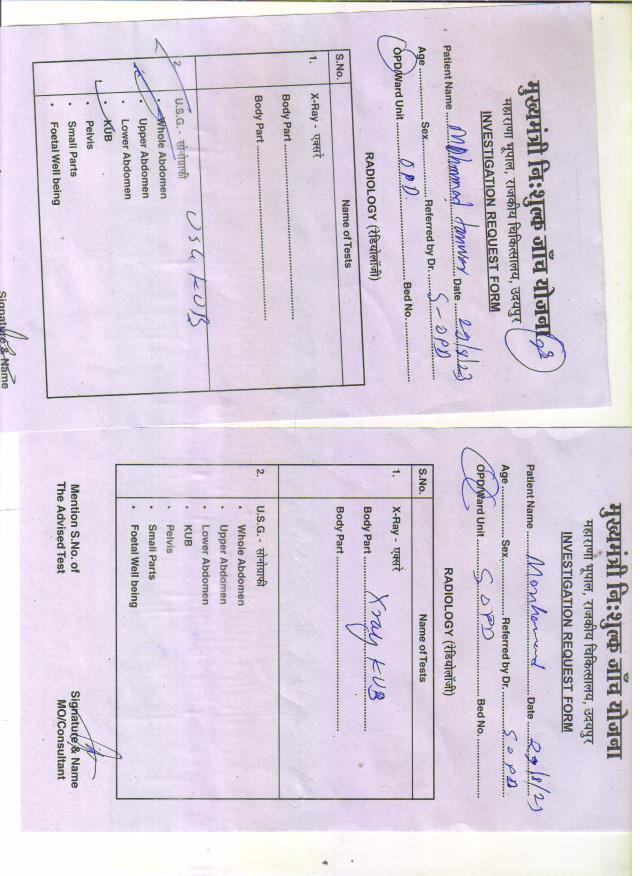 मुख्यमंत्री नि:शुल्क जाँच योजना
महाराणा भूपाल, राजकीय चिकित्सालय, उदयपुर
INVESTIGATION REQUEST FORM
Patient Name ........ Mohammad ........ Date ........ 29/8/23
Age ........ Sex ........ Referred by Dr. ........ S-OPD
OPD/Ward Unit ........ OPD ........ Bed No. ........
RADIOLOGY (रेडियोलॉजी)
S.No. Name of Tests
1. X-Ray - एक्सरे
Body Part ........
Body Part ........
2. U.S.G. - सोनोग्राफी
USG KUB
• Whole Abdomen
• Upper Abdomen
• Lower Abdomen
• KUB
• Pelvis
• Small Parts
• Foetal Well being
Signature & Name
मुख्यमंत्री नि:शुल्क जाँच योजना
महाराणा भूपाल, राजकीय चिकित्सालय, उदयपुर
INVESTIGATION REQUEST FORM
Patient Name ........ Date ........ 29/8/23
Age ........ Sex ........ Referred by Dr. ........ SOPD
OPD/Ward Unit ........ SOPD ........ Bed No. ........
RADIOLOGY (रेडियोलॉजी)
S.No. Name of Tests
1. X-Ray - एक्सरे
Body Part ........ Xray KUB
Body Part ........
2. U.S.G. - सोनोग्राफी
• Whole Abdomen
• Upper Abdomen
• Lower Abdomen
• KUB
• Pelvis
• Small Parts
• Foetal Well being
Mention S.No. of Signature & Name
The Advised Test MO/Consultant